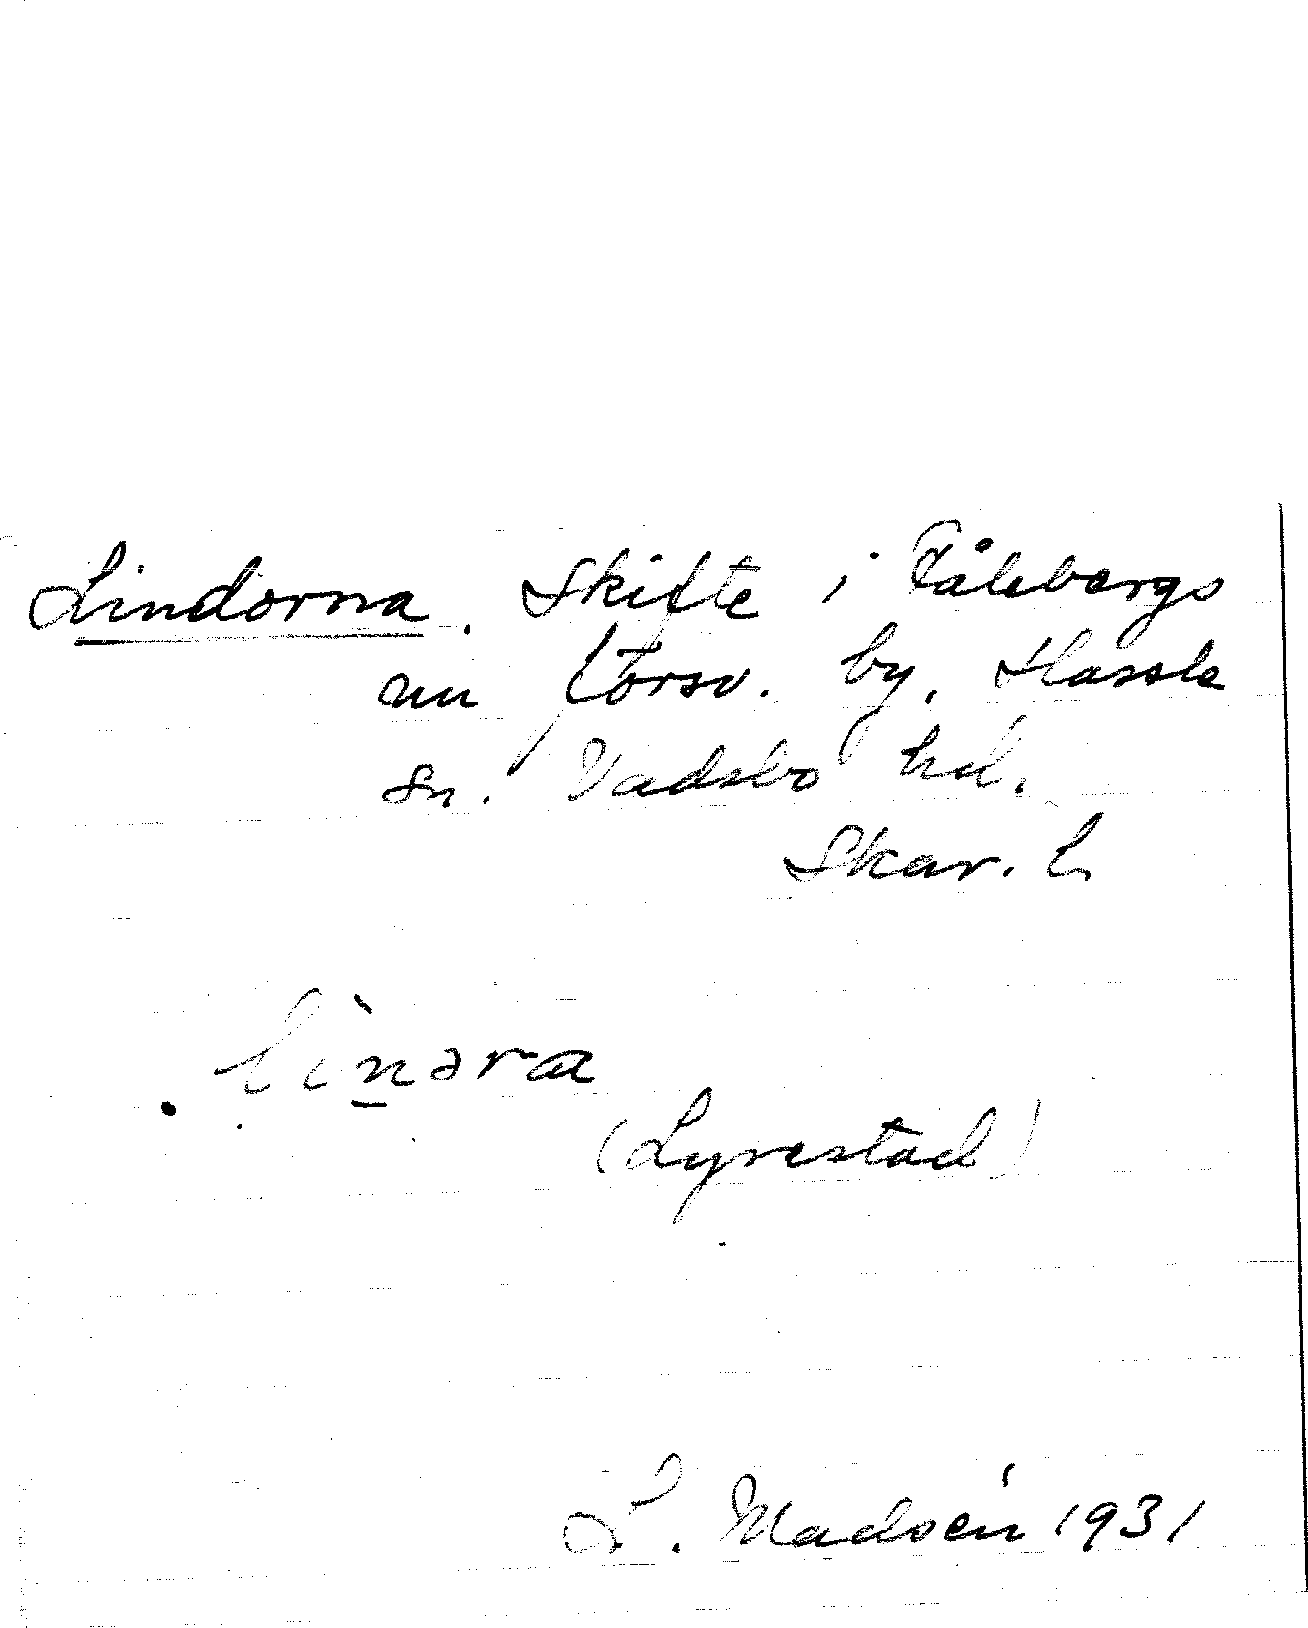 Lindorna. Skifte i Fålebergs
nu försv. by, Hassle
sn. Vadsbo hd.
Skar. L
lìn̲əra
(Lyrestad)
L. Madsén 1931